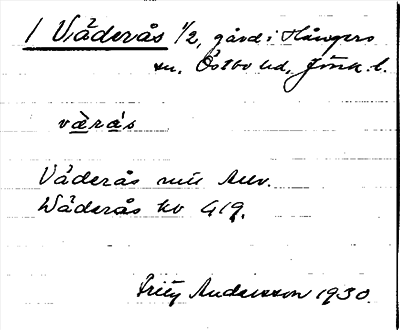 1 Väderås 1/2, gård i Hångers
sn. Östbo hd, Jönk. l.
värás
Väderås
Wäderås kv 419.
Fritz Andersson 1930.